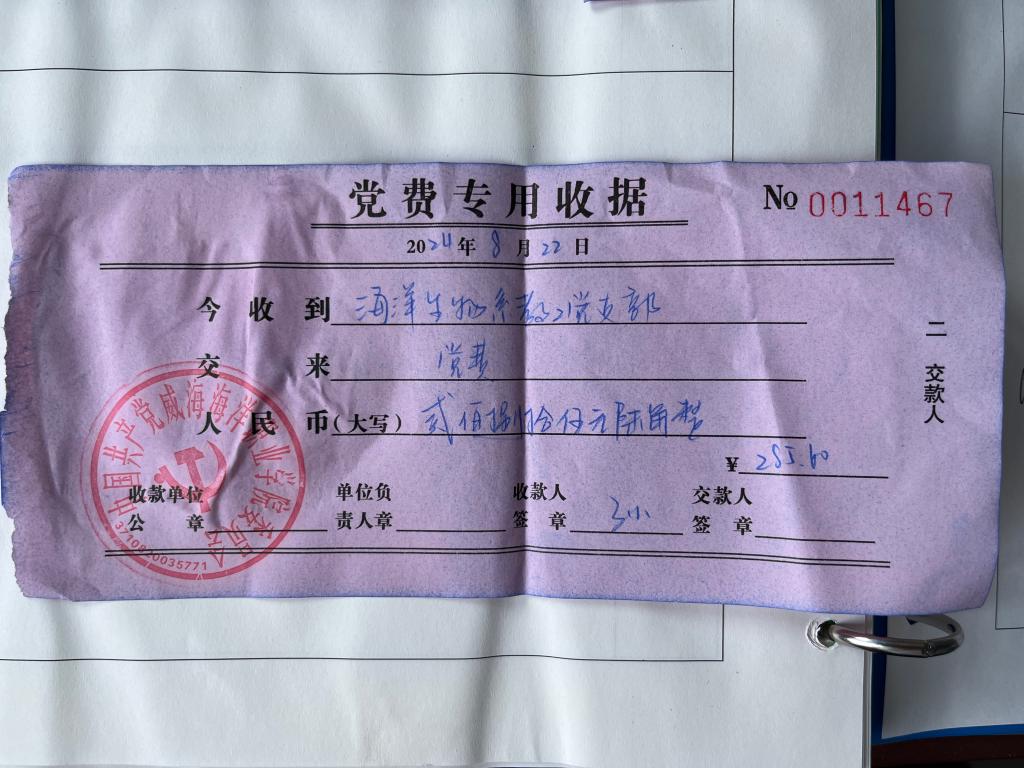 党费专用收据
No 0011467
2024年8月22日
今收到 海洋生物系教工党支部
交来 党费
人民币(大写) 贰佰捌拾伍元陆角整
¥ 285.60
收款单位公章
单位负责人章
收款人签章
交款人签章
二 交款人
中国共产党威海海洋职业学院委员会
3710820035771